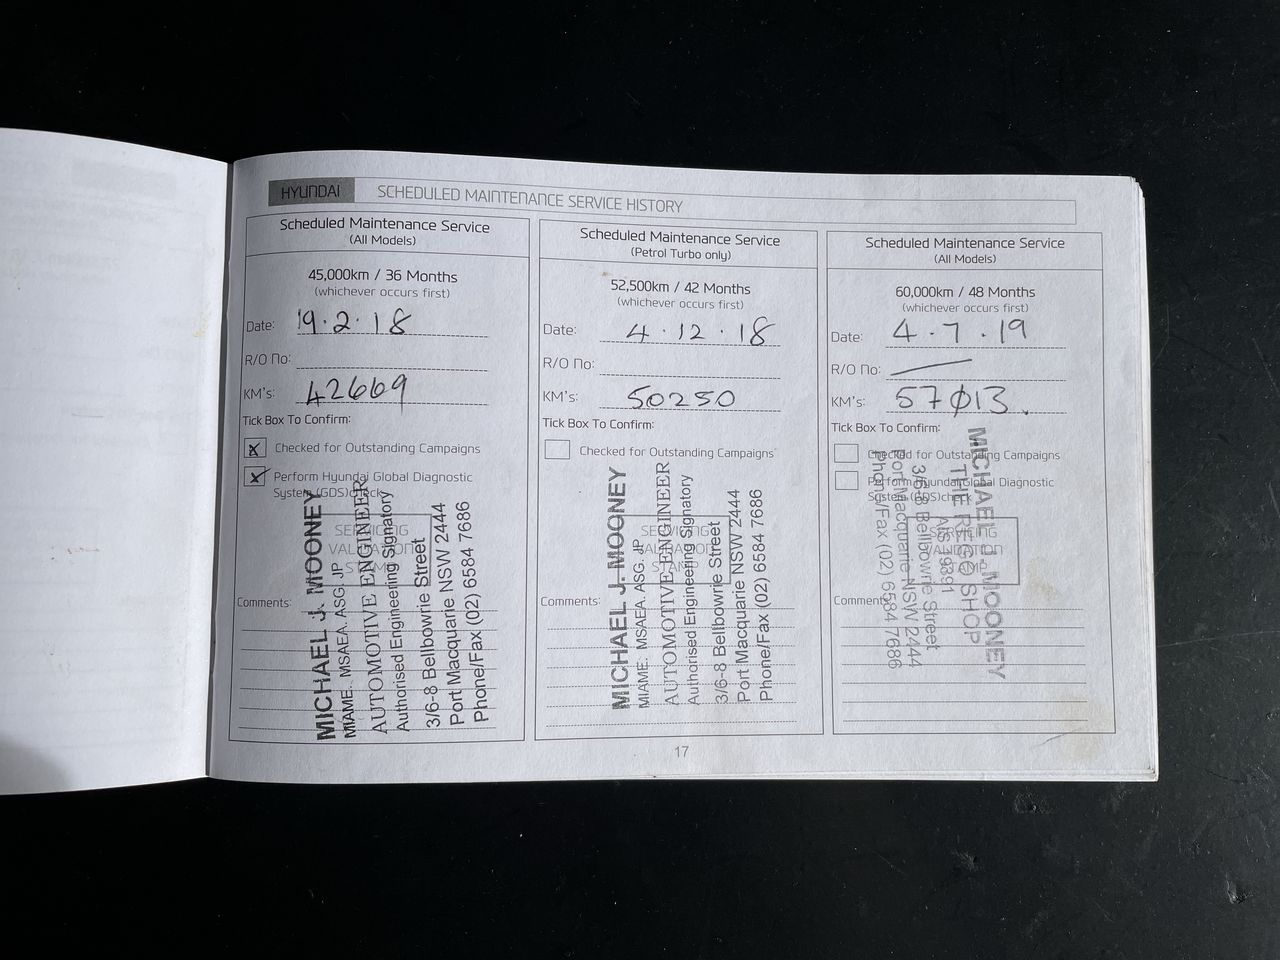 HYUNDAI SCHEDULED MAINTENANCE SERVICE HISTORY
Scheduled Maintenance Service
(All Models)
45,000km / 36 Months
(whichever occurs first)
Date: 19.2.18
R/O No:
KM's: 42669
Tick Box To Confirm:
Checked for Outstanding Campaigns
Perform Hyundai Global Diagnostic
System (GDS) check
SERVICING
VALIDATION
STAMP
Comments:
MICHAEL J. MOONEY
MIAME. MSAEA. ASG. JP
AUTOMOTIVE ENGINEER
Authorised Engineering Signatory
3/6-8 Bellbowrie Street
Port Macquarie NSW 2444
Phone/Fax (02) 6584 7686
Scheduled Maintenance Service
(Petrol Turbo only)
52,500km / 42 Months
(whichever occurs first)
Date: 4.12.18
R/O No:
KM's: 50250
Tick Box To Confirm:
Checked for Outstanding Campaigns
SERVICING
VALIDATION
STAMP
Comments:
MICHAEL J. MOONEY
MIAME. MSAEA. ASG. JP
AUTOMOTIVE ENGINEER
Authorised Engineering Signatory
3/6-8 Bellbowrie Street
Port Macquarie NSW 2444
Phone/Fax (02) 6584 7686
Scheduled Maintenance Service
(All Models)
60,000km / 48 Months
(whichever occurs first)
Date: 4.7.19
R/O No: —
KM's: 57013.
Tick Box To Confirm:
Checked for Outstanding Campaigns
Perform Hyundai Global Diagnostic
System (GDS) check
SERVICING
VALIDATION
STAMP
Comments:
MICHAEL J MOONEY
THE REGO SHOP
3/6-8 Bellbowrie Street
Port Macquarie NSW 2444
Phone/Fax (02) 6584 7686
17